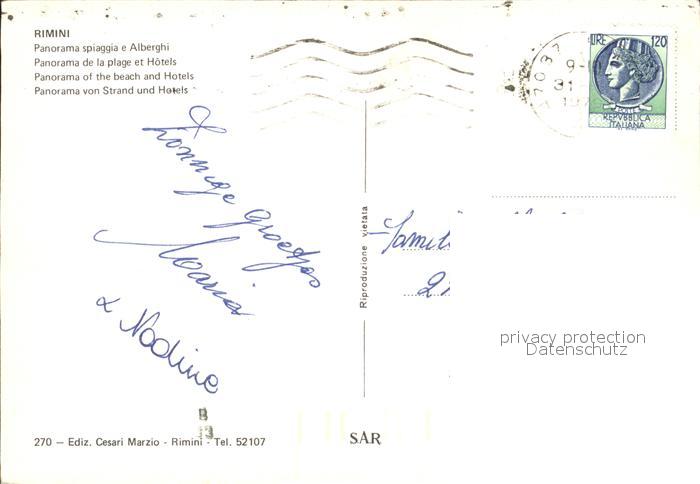 RIMINI
Panorama spiaggia e Alberghi
Panorama de la plage et Hôtels
Panorama of the beach and Hotels
Panorama von Strand und Hotels
LIRE 120
REPVBBLICA
ITALIANA
9-
31
197
Zonnige Groetjes
&  Nadine
Riproduzione vietata
2
privacy protection
Datenschutz
B
13
270 — Ediz. Cesari Marzio - Rimini - Tel. 52107
SAR